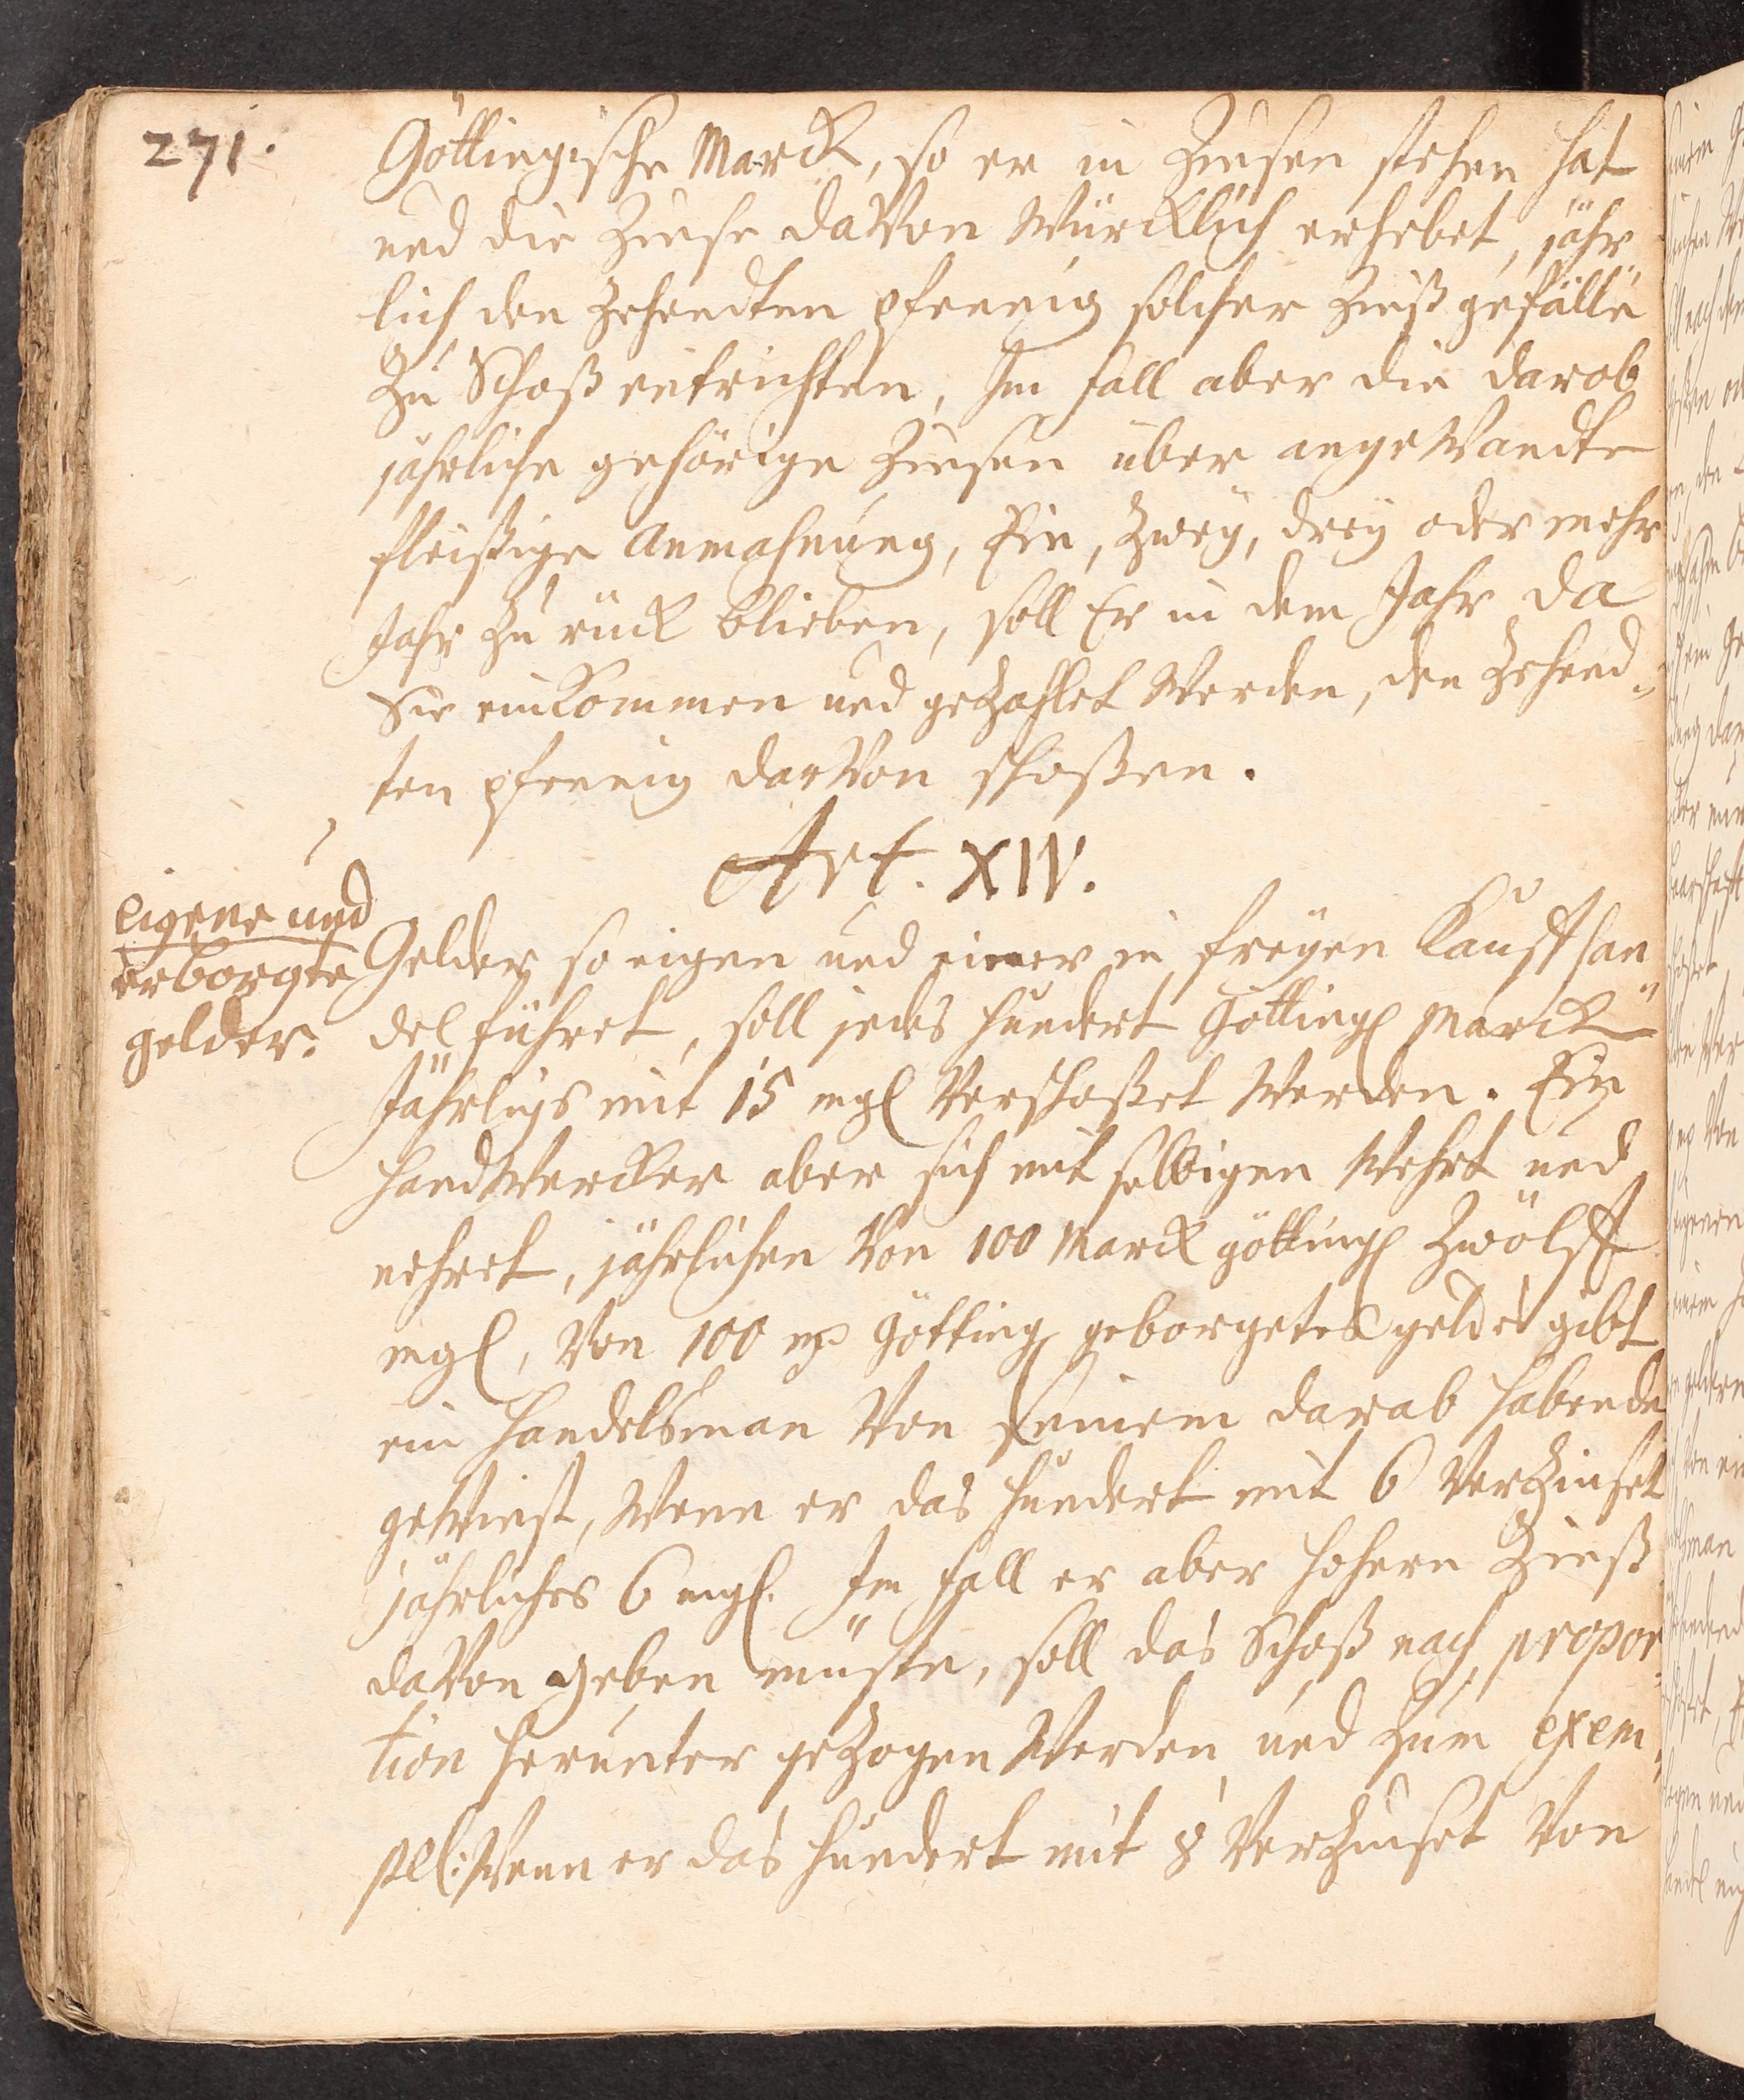 271.
Göttingische Marck, so er in Zinsen stehen hat
und die Zinse davon würcklich erhebet, jähr„
lich den Zehendten pfennig solcher Zinßgefälle
Zu Schoß entrichten, Im fall aber die darob
jährliche gehörige Zinsen über angewandte
fleißige Anmahnung, Ein, Zwey, drey oder mehr
Jahr Zu rück blieben, soll Er in dem Jahr da
Sie einkommen und gezahlet werden, den Zehend„
ten pfennig darvon schoßen.
Art. XIV.
eigene und
erborgte
gelder.
Gelder so eigen und einer in freyen Kauffhan„
del führet, soll jedes hundert Götting Marck
Jährligs mit 15 mgl verschoßet werden. Ein
Handwercker aber sich mit selbigen wehrt und
nehret, jährlichen von 100 Marck götting Zwölff
mgl, von 100 mp Götting geborgetes geldes gibt
ein Handelsman von seinem darab habende
gewinst, wenn er das hundert mit 6 verzinset
jährliches 6 mgl. Im fall er aber hohern Zinß
davon geben müste, soll das Schoß nach propor„
tion herunter gezogen werden und Zum exem„
pel: wenn er das hundert mit 8 verzinset von